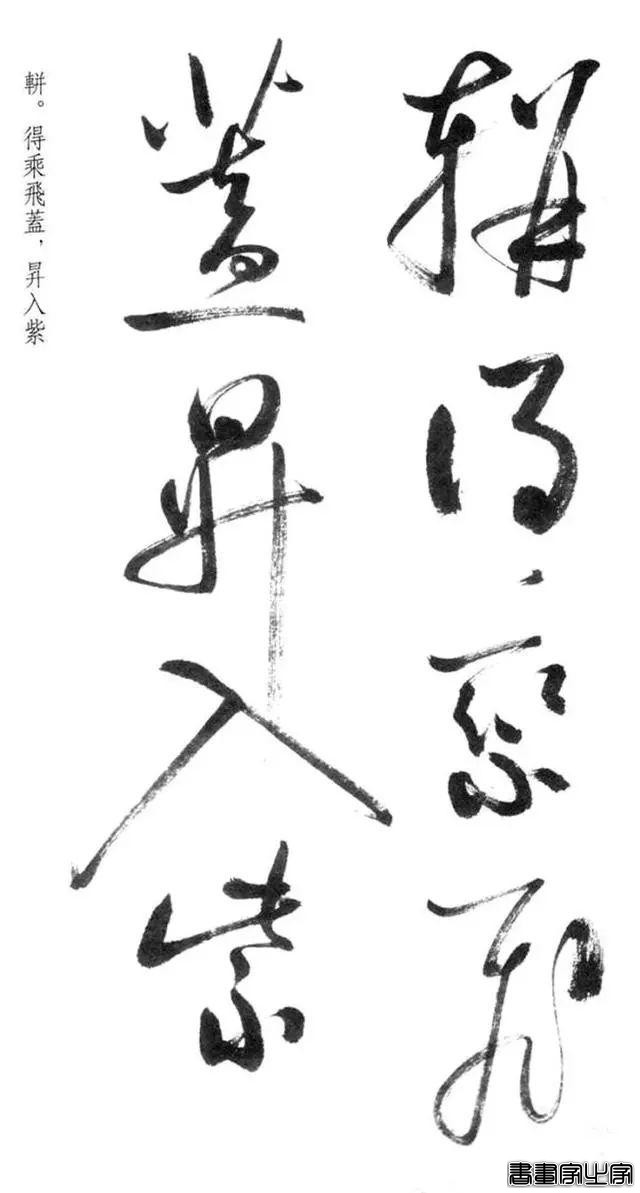 軿得乘飛
蓋昇入紫
軿。得乘飛蓋，昇入紫
書畫家之家